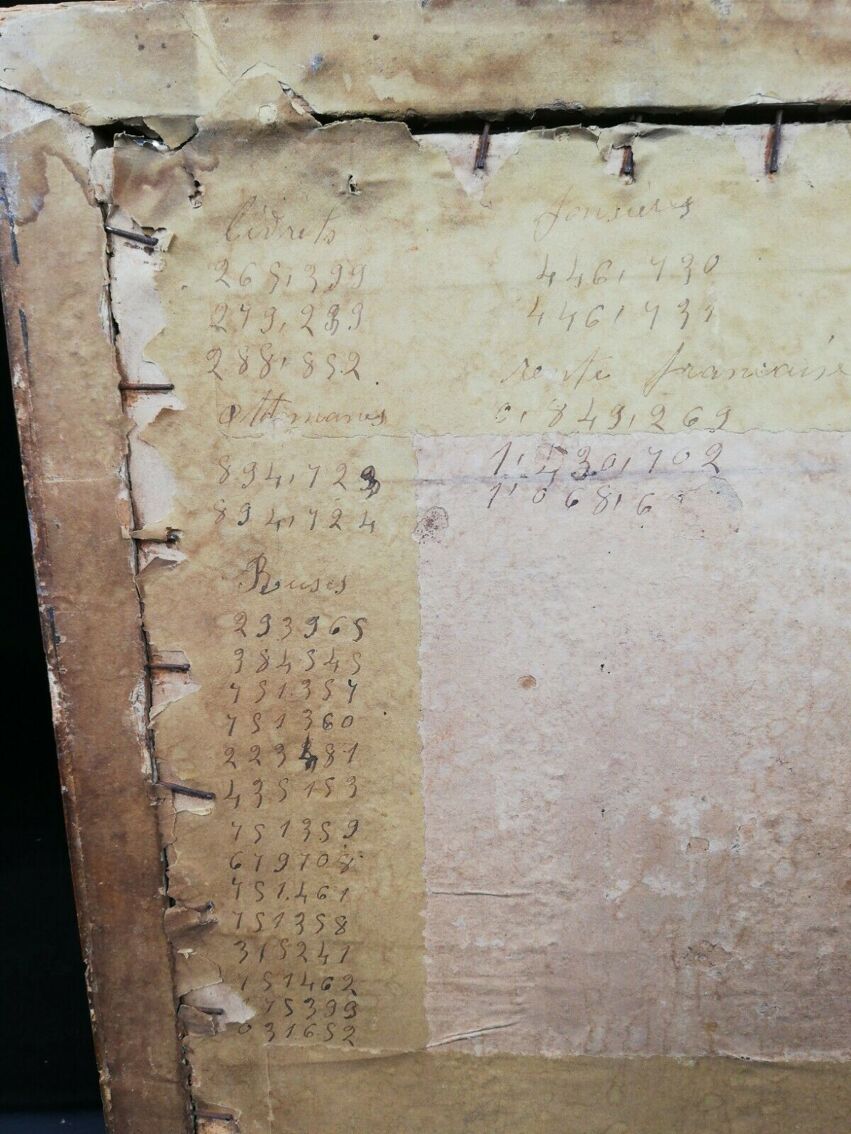 265,399
288,852
Ottmanes
894,723
894,724
Ruses
293965
384545
751357
751360
223481
435153
751359
679708
751461
751358
315241
751462
15399
031652
fonsiers
446,730
446,731
rente francaise
0,849,269
1,430,702
1,068,6